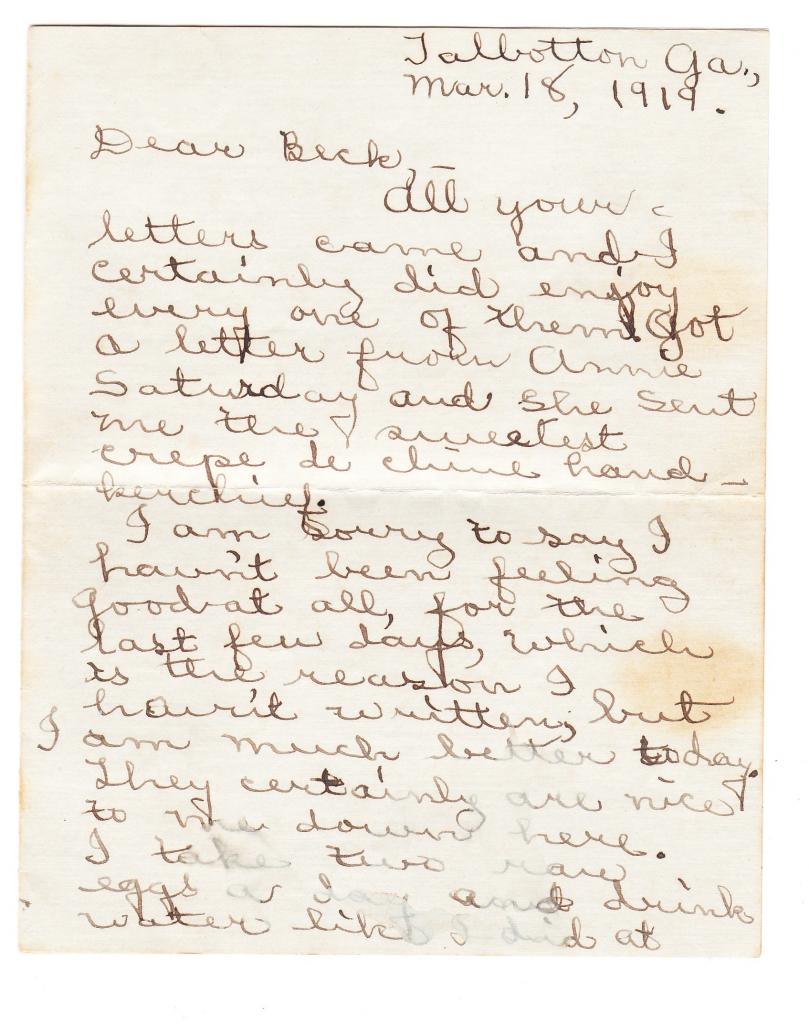 Talbotton Ga.,
Mar. 18, 1919.
Dear Beck, –
All your
letters came and I
certainly did enjoy
every one of them. I got
a letter from Annie
Saturday and she sent
me the sweetest
crepe de chine hand-
kerchief.
I am sorry to say I
havn't been feeling
good at all, for the
last few days, which
is the reason I
havn't written, but
I am much better today.
They certainly are nice
to me down here.
I take two raw
eggs a day and drink
water like I did at